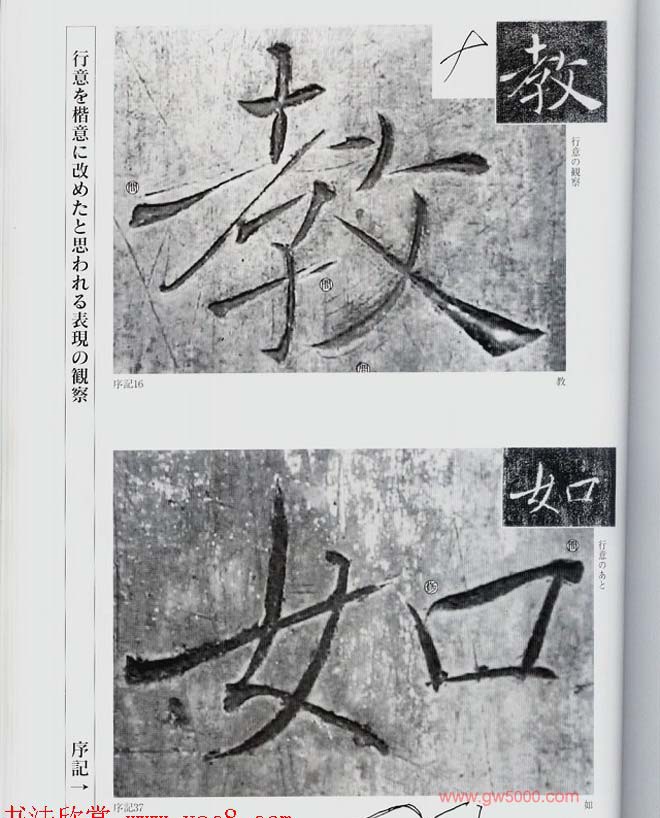 行意を楷意に改めたと思われる表現の観察
序記→
教
教
行意の観察
序記16
教
如
如
行意のあと
序記37
如
www.gw5000.com
书法欣赏 www.yac8.com